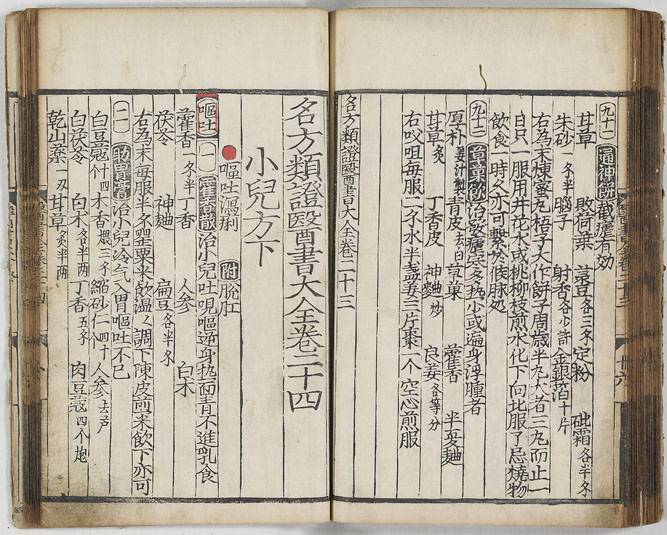 九十一 通神餅截瘧有効
甘草 荷葉 各三匁 定粉 砒霜各半匁
朱砂一匁半 腦子 射香各少許 金銀箔十片
右為末煉蜜丸梧子大作餅子周歲半丸大者三丸而止一
日只一服用井花水或桃柳枝煎水化下向北服了忌燒物
飲食一時久亦可繫於候脉処
九十二 草菓飲治寒瘧寒多热少或遍身浮腫者
厚朴姜汁製 青皮去白 草菓 藿香 半夏麯
甘草炙 丁香皮 神麯炒 良姜各等分
右㕮咀每服二匁水半盞姜三片棗一个空心煎服
名方類證醫書大全卷二十三
名方類證醫書大全卷二十四
小兒方下
嘔吐瀉痢 附脫肛
嘔吐 一 藿香散治小兒吐哯嘔逆身热面青不進乳食
藿香一匁半 丁香 人參 白朮
茯苓 神麯 扁豆各半匁
右為末每服半匁罌粟米飲温々調下陳皮煎米飲下亦可
二 助胃膏治小兒冷气入胃嘔吐不已
白豆蔻什四 木香煨三匁 縮砂仁四十个 人參去芦
白茯苓 白朮各半两 丁香五匁 肉豆蔻四个炮
乾山藥一两 甘草炙半两